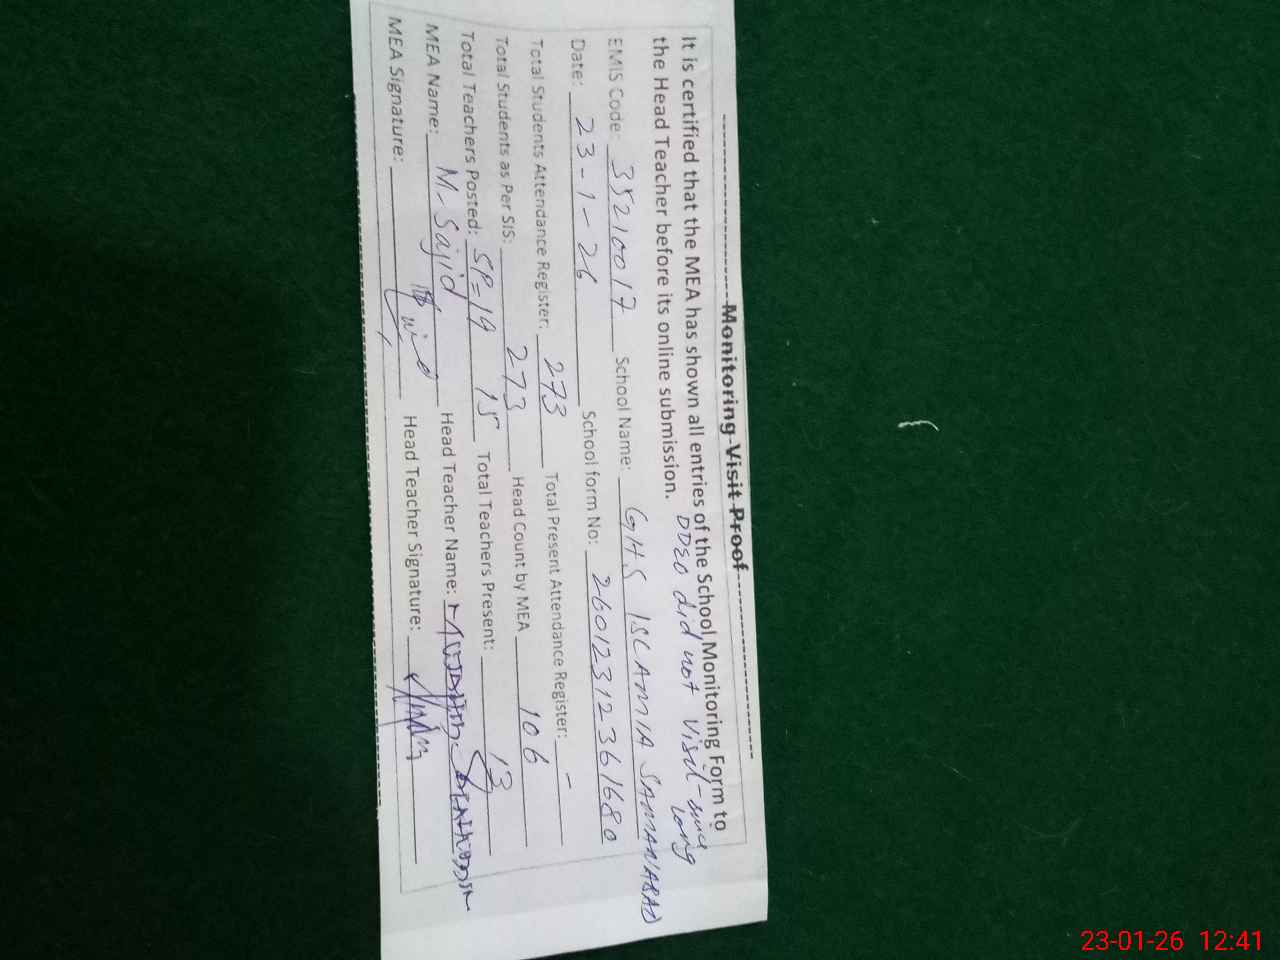 Monitoring Visit Proof
It is certified that the MEA has shown all entries of the School Monitoring Form to
the Head Teacher before its online submission. DDEO did not visit since
long
EMIS Code: 35210017 School Name: GHS ISLAMIA SAMANABAD
Date: 23-1-26 School form No: 26012312361680
Total Students Attendance Register: 273 Total Present Attendance Register: -
Total Students as Per SIS: 273 Head Count by MEA 106
Total Teachers Posted: SP=19 15 Total Teachers Present: 13
MEA Name: M. Sajid Head Teacher Name:
MEA Signature: Head Teacher Signature:
23-01-26 12:41